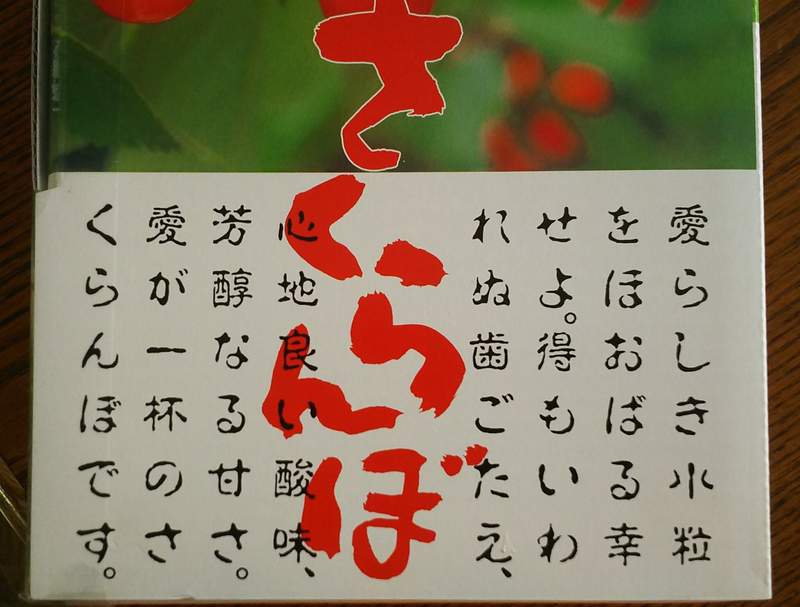 さくらんぼ
愛らしき小粒
をほおばる幸
せよ。得もいわ
れぬ歯ごたえ、
心地良い酸味、
芳醇なる甘さ。
愛が一杯のさ
くらんぼです。